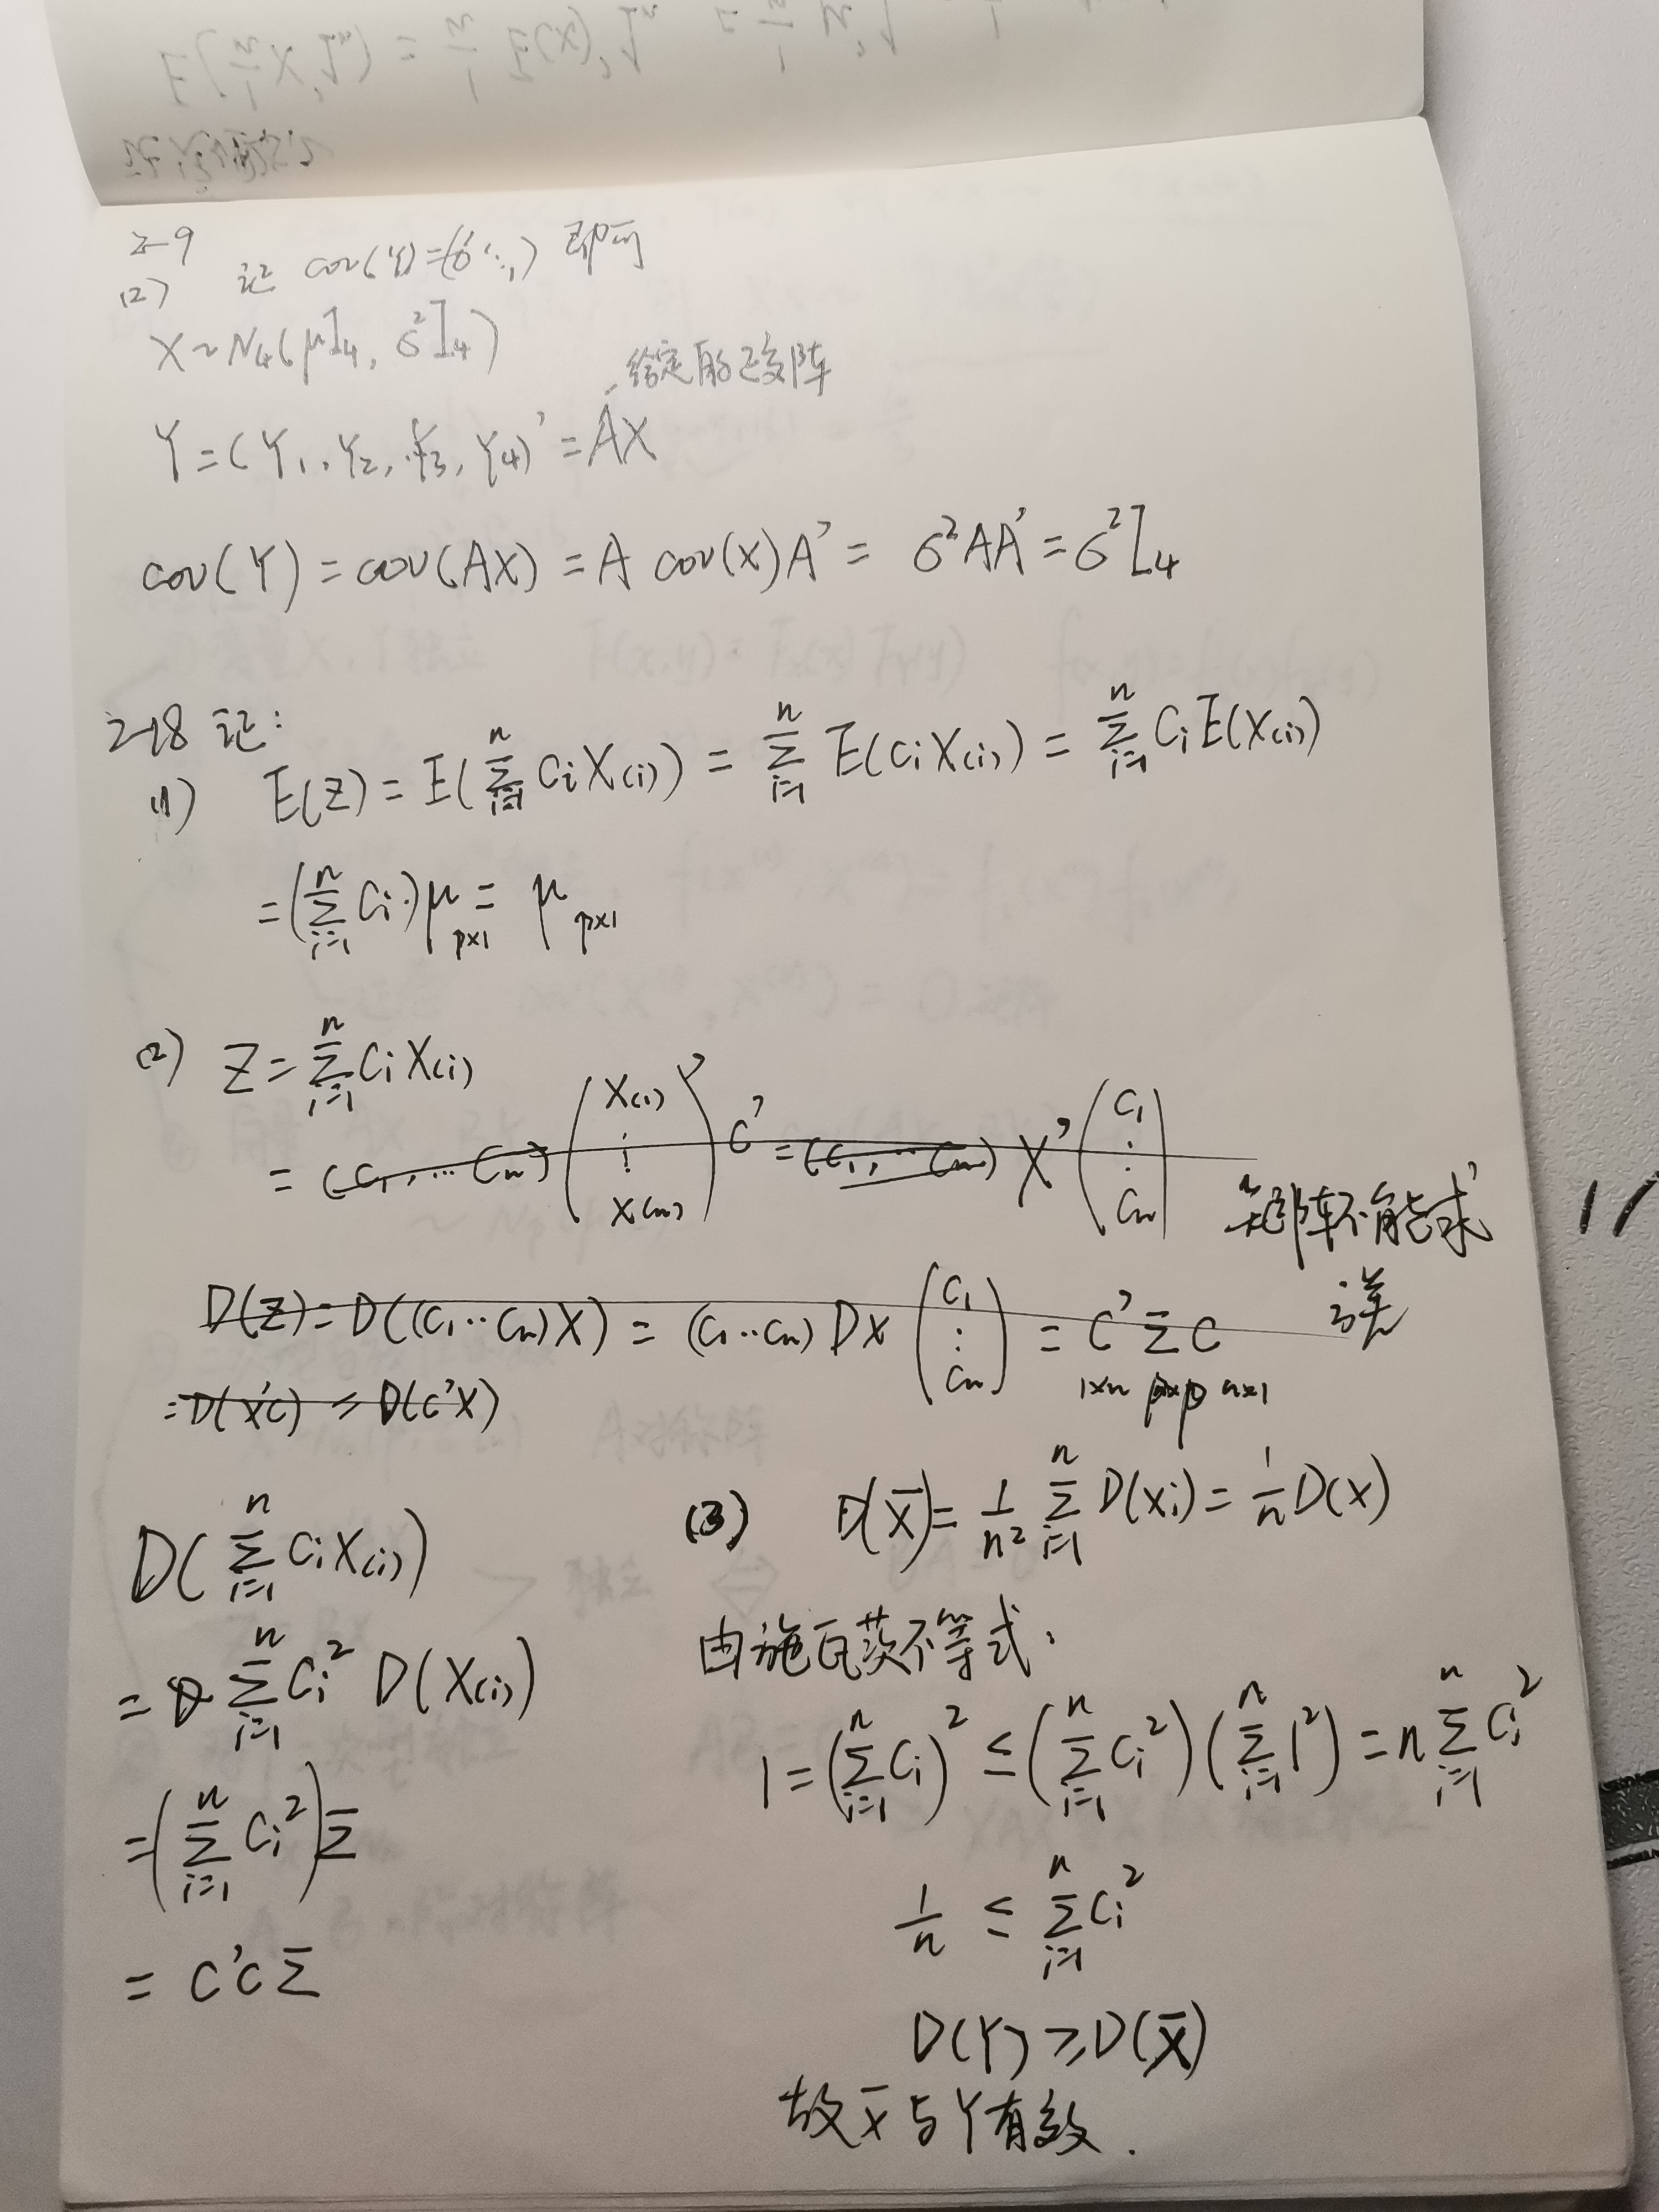 2-9
(2) 记 cov(Y)=(σ²...) 即可
X~N₄(μ1₄, σ²I₄)
给定的正交阵
Y=(Y₁, Y₂, Y₃, Y₄)'=AX
cov(Y)=cov(AX)=A cov(X)A'= σ²AA'=σ²I₄
2-18 记:
(1) E(Z)=E(∑ᵢ₌₁ⁿ CᵢX₍ᵢ₎) = ∑ᵢ₌₁ⁿ E(CᵢX₍ᵢ₎) = ∑ᵢ₌₁ⁿ CᵢE(X₍ᵢ₎)
=(∑ᵢ₌₁ⁿ Cᵢ)μ p×1 = μ p×1
(2) Z=∑ᵢ₌₁ⁿ CᵢX₍ᵢ₎
= (C₁,...Cₙ) (X₍₁₎ ⋮ X₍ₙ₎)' C' =(C₁,...Cₙ) X' (C₁ ⋮ Cₙ)
矩阵不能求
D(Z)=D((C₁..Cₙ)X) = (C₁..Cₙ) DX (C₁ ⋮ Cₙ) = C'ΣC
1×n p×p n×1
误
=D(X'C) = D(C'X)
D(∑ᵢ₌₁ⁿ CᵢX₍ᵢ₎)
= ∑ᵢ₌₁ⁿ Cᵢ² D(X₍ᵢ₎)
=(∑ᵢ₌₁ⁿ Cᵢ²)Σ
= C'CΣ
(3) D(X̄)= 1/n² ∑ᵢ₌₁ⁿ D(Xᵢ)= 1/n D(X)
由施瓦茨不等式:
1=(∑ᵢ₌₁ⁿ Cᵢ)² ≤ (∑ᵢ₌₁ⁿ Cᵢ²)(∑ᵢ₌₁ⁿ 1²) = n∑ᵢ₌₁ⁿ Cᵢ²
1/n ≤ ∑ᵢ₌₁ⁿ Cᵢ²
D(Y)≥D(X̄)
故X̄与Y有效.